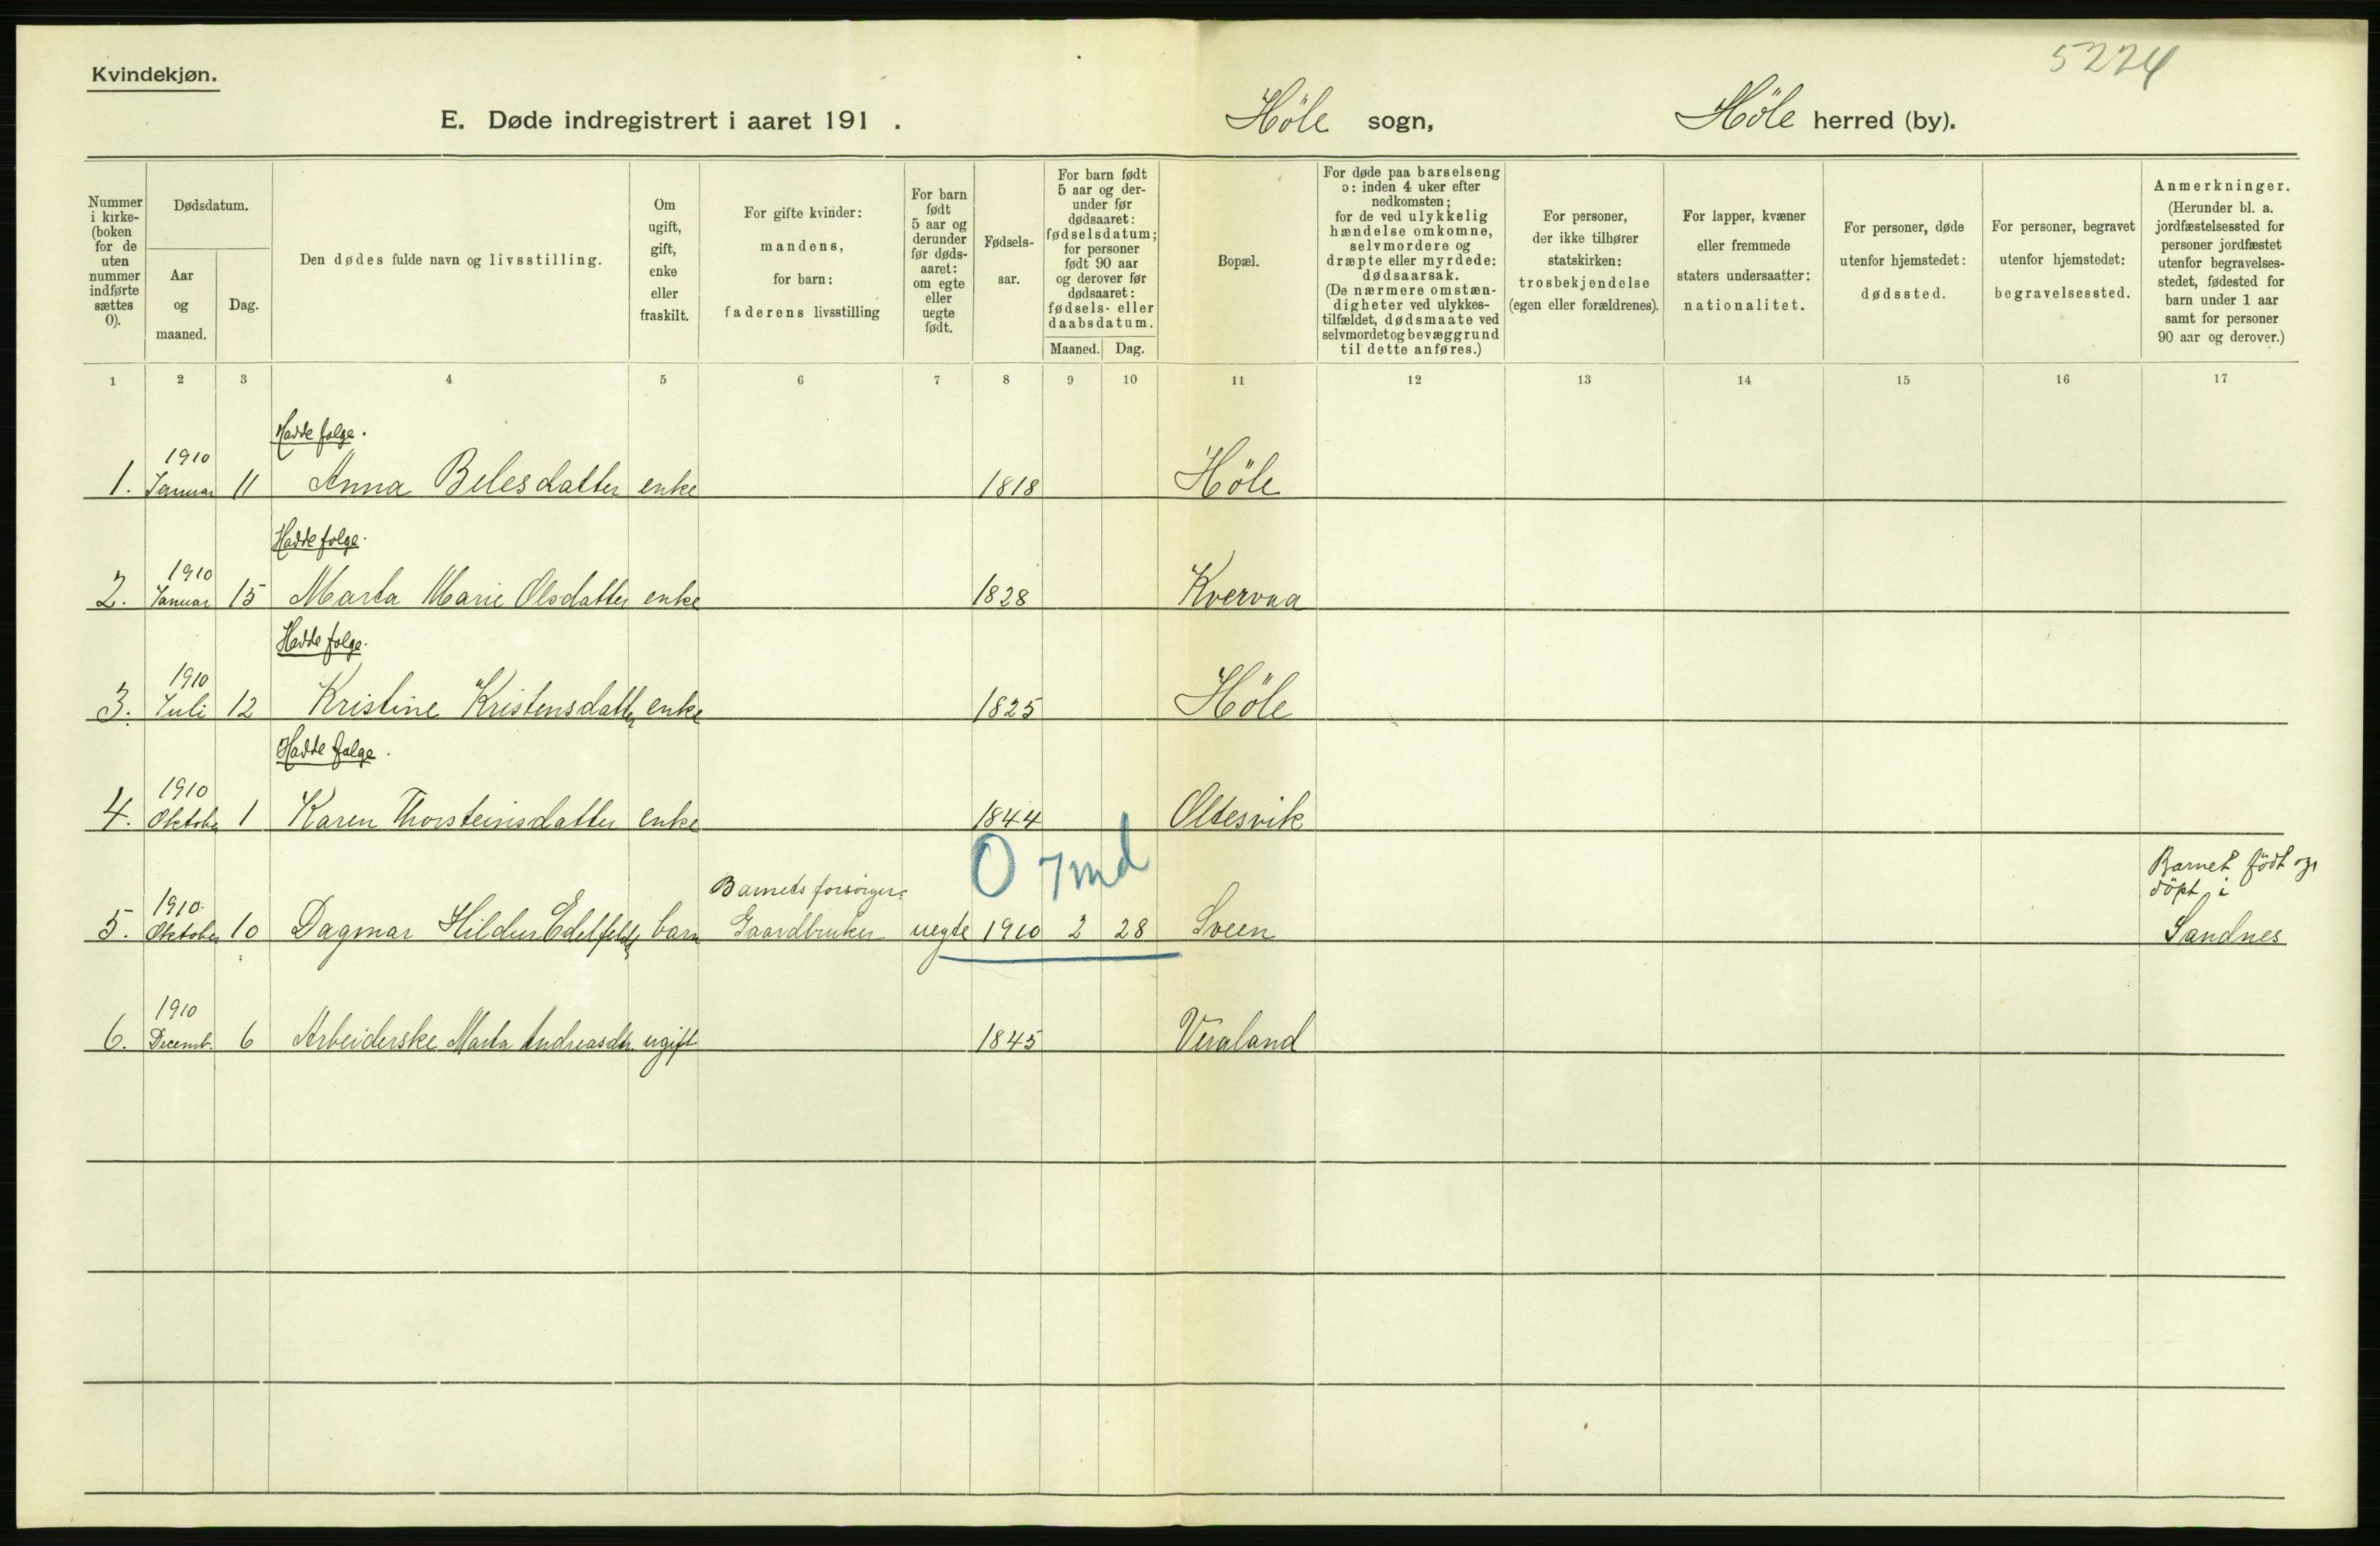 5224
Kvindekjøn.
E. Døde indregistrert i aaret 191 . Höle sogn, Höle herred (by).
Nummer i kirke- (boken for de uten nummer indførte sættes 0).
Dødsdatum.
Aar og maaned.
Dag.
Den dødes fulde navn og livsstilling.
Om ugift, gift, enke eller fraskilt.
For gifte kvinder: mandens, for barn: faderens livsstilling
For barn født 5 aar og derunder før døds- aaret: om egte eller uegte født.
Fødsels- aar.
For barn født 5 aar og der- under før dødsaaret: fødselsdatum; for personer født 90 aar og derover før dødsaaret: fødsels- eller daabsdatum.
Maaned. Dag.
Bopæl.
For døde paa barselseng ɔ: inden 4 uker efter nedkomsten; for de ved ulykkelig hændelse omkomne, selvmordere og dræpte eller myrdede: dødsaarsak. (De nærmere omstæn- digheter ved ulykkes- tilfældet, dødsmaate ved selvmordet og bevæggrund til dette anføres.)
For personer, der ikke tilhører statskirken: trosbekjendelse (egen eller forældrenes).
For lapper, kvæner eller fremmede staters undersaatter: nationalitet.
For personer, døde utenfor hjemstedet: dødssted.
For personer, begravet utenfor hjemstedet: begravelsessted.
Anmerkninger. (Herunder bl. a. jordfæstelsessted for personer jordfæstet utenfor begravelses- stedet, fødested for barn under 1 aar samt for personer 90 aar og derover.)
1 2 3 4 5 6 7 8 9 10 11 12 13 14 15 16 17
Hadde følge.
1910
1. Januar 11 Anna Belesdatter enke 1818 Höle
Hadde følge.
1910
2. Januar 15 Marta Marie Olsdatter enke 1828 Kvervaa
Hadde følge.
1910
3. Juli 12 Kristine Kristensdatter enke 1825 Höle
Hadde følge.
1910
4. Oktober 1 Karen Thorsteinsdatter enke 1844 Oltesvik
0 7 md
Barnets forsörger:
Barnet födt og
döpt i
1910
5. Oktober 10 Dagmar Hildur Edelfeldt barn Gaardbruker uegte 1910 2 28 Sveen Sandnes
1910
6. Decemb. 6 Arbeiderske Marta Andreasdtr. ugift 1845 Veraland